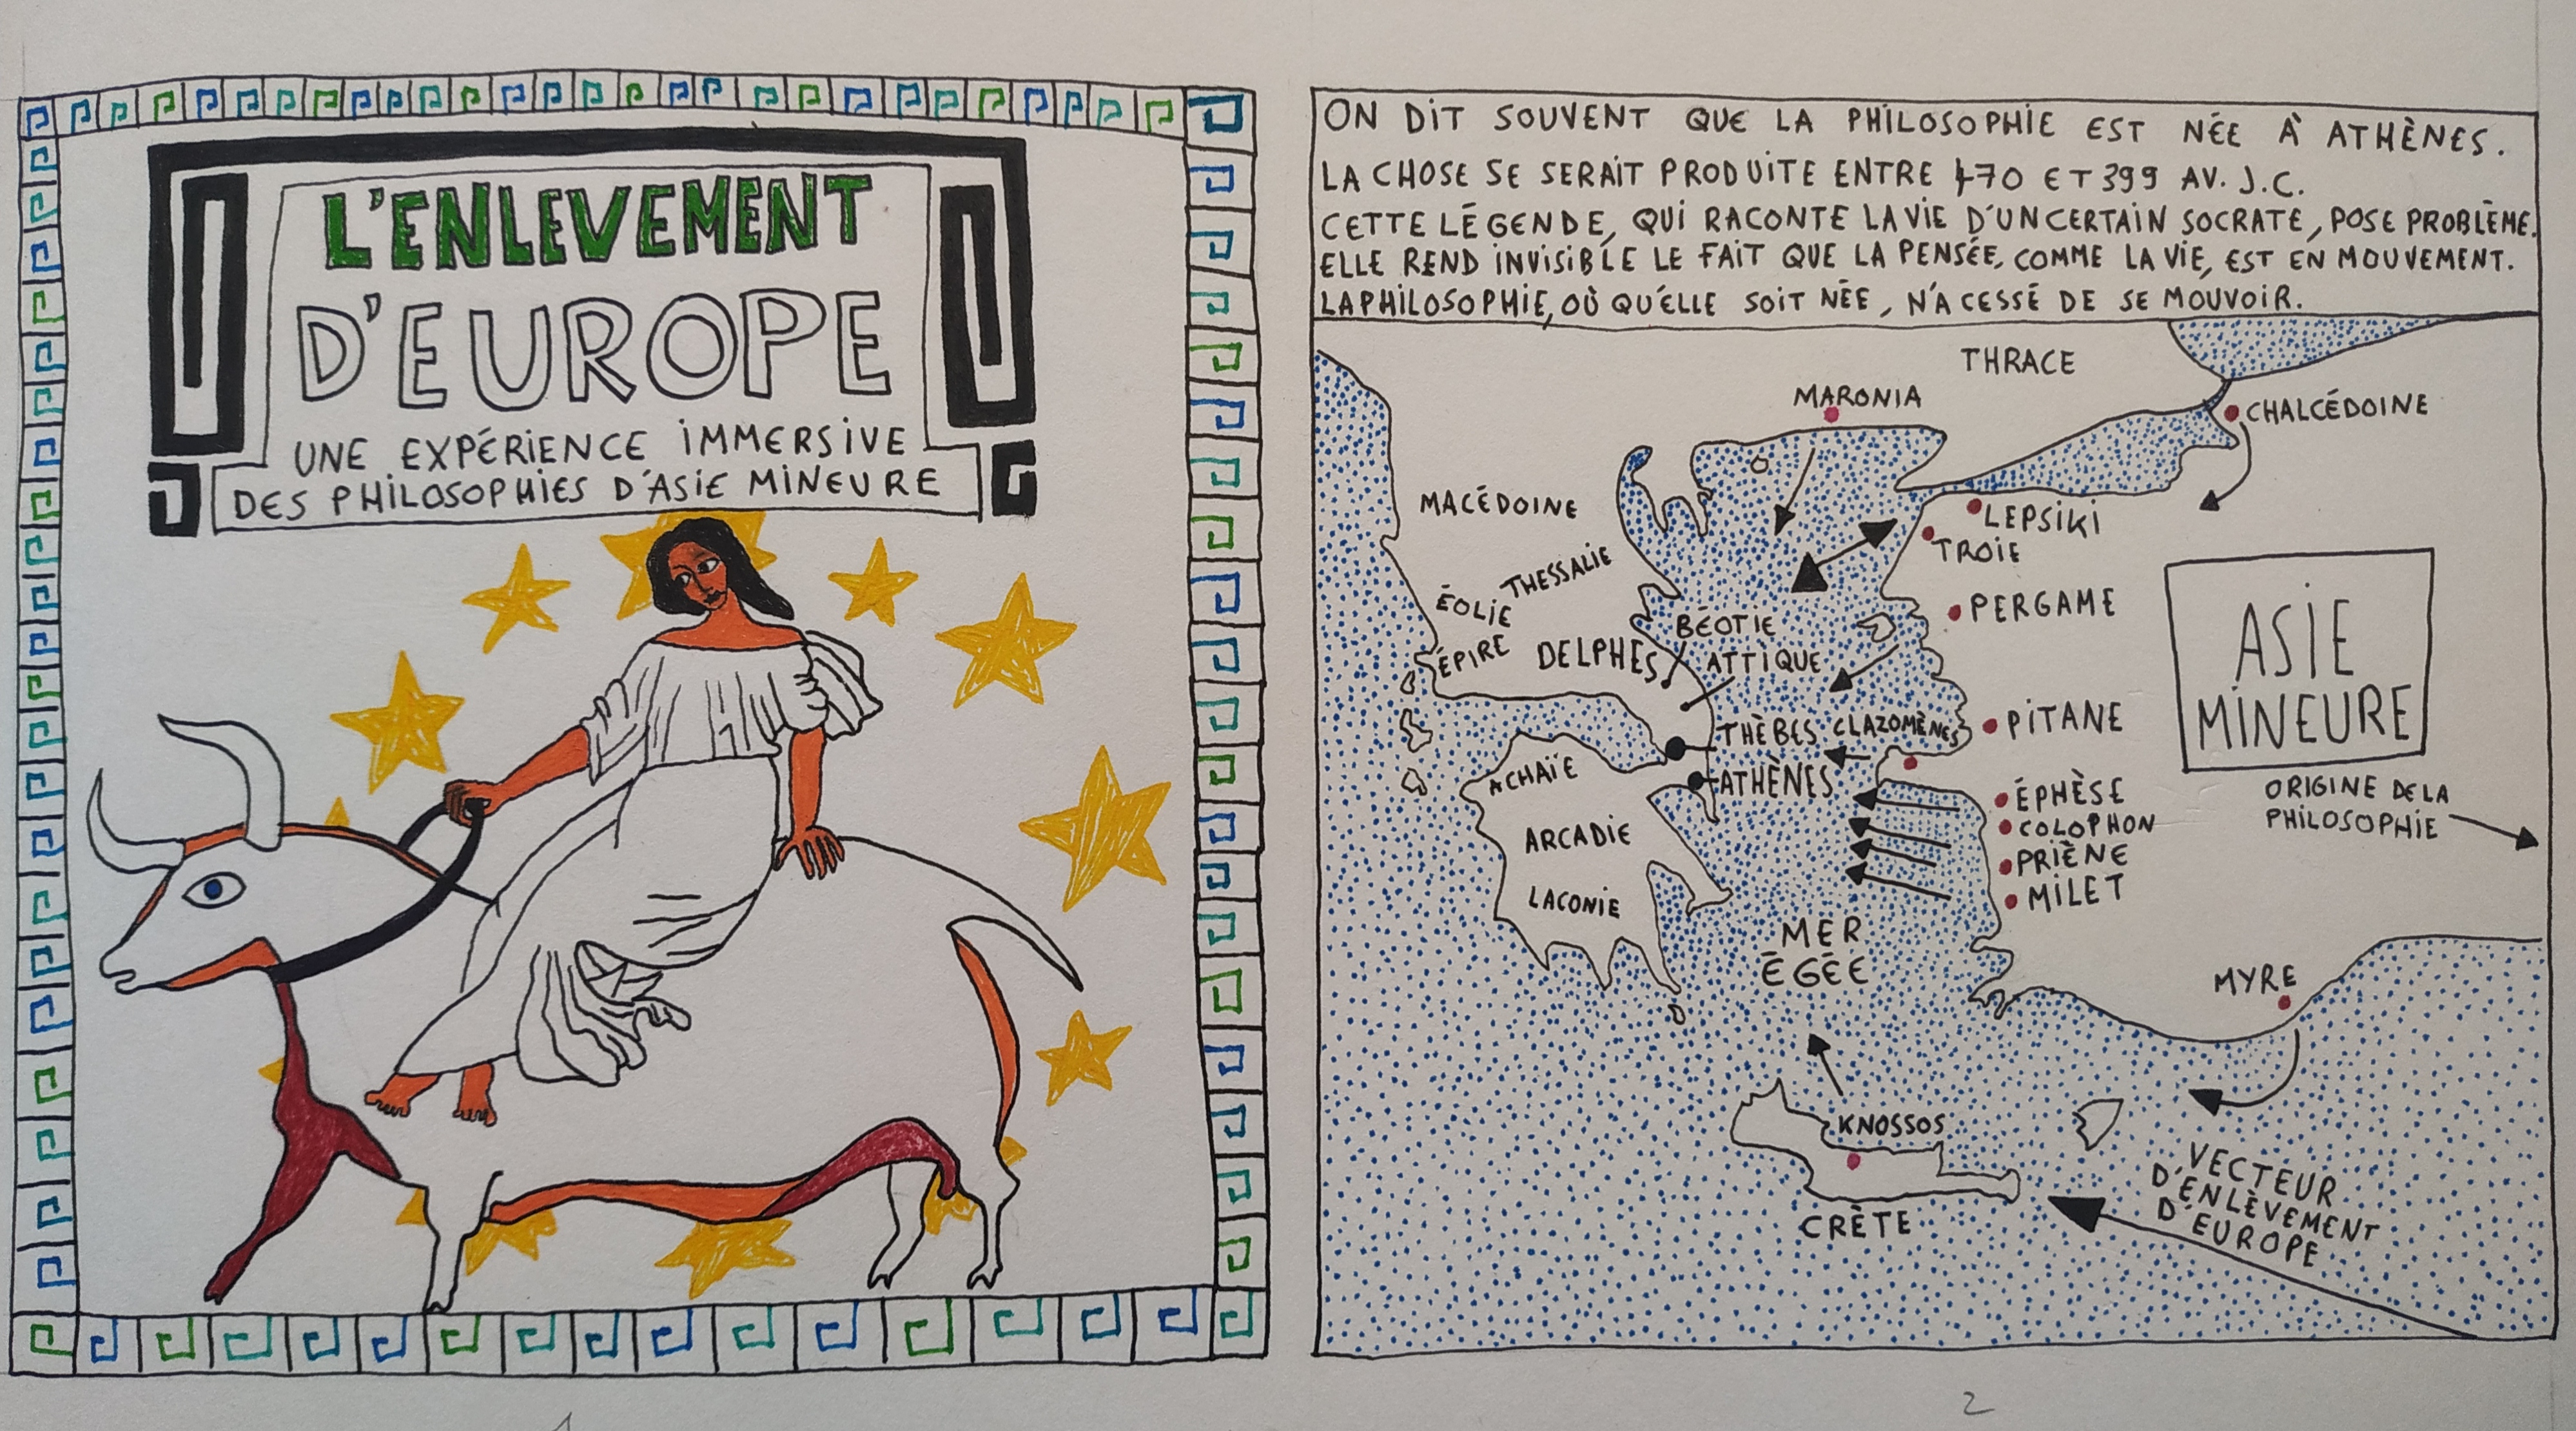 L'ENLEVEMENT
D'EUROPE
UNE EXPÉRIENCE IMMERSIVE
DES PHILOSOPHIES D'ASIE MINEURE
1
ON DIT SOUVENT QUE LA PHILOSOPHIE EST NÉE À ATHÈNES.
LA CHOSE SE SERAIT PRODUITE ENTRE 470 ET 399 AV. J.C.
CETTE LÉGENDE, QUI RACONTE LA VIE D'UN CERTAIN SOCRATE, POSE PROBLÈME.
ELLE REND INVISIBLE LE FAIT QUE LA PENSÉE, COMME LA VIE, EST EN MOUVEMENT.
LA PHILOSOPHIE, OÙ QU'ELLE SOIT NÉE, N'A CESSÉ DE SE MOUVOIR.
THRACE
MARONIA
CHALCÉDOINE
MACÉDOINE
LEPSIKI
TROIE
THESSALIE
ÉOLIE
PERGAME
BÉOTIE
ÉPIRE
DELPHES
ATTIQUE
ASIE
MINEURE
THÈBES
CLAZOMÈNES
PITANE
ACHAÏE
ATHÈNES
ÉPHÈSE
COLOPHON
PRIÈNE
MILET
ORIGINE DE LA
PHILOSOPHIE
ARCADIE
LACONIE
MER
ÉGÉE
MYRE
KNOSSOS
CRÈTE
VECTEUR
D'ENLÈVEMENT
D'EUROPE
2